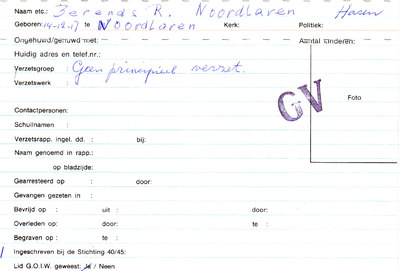 Naam etc.: Berends R. Noordlaren Haren
Geboren: 14-12-17 te Noordlaren Kerk: Politiek:
Ongehuwd/gehuwd met: Aantal kinderen:
Huidig adres en telef.nr.:
Verzetsgroep : Geen principieel verzet.
Verzetswerk :
GV
Foto
Contactpersonen:
Schuilnaam :
Verzetsrapp. ingel. dd. : bij:
Naam genoemd in rapp.:
op bladzijde:
Gearresteerd op : door:
Gevangen gezeten in :
Bevrijd op : uit : door:
Overleden op : door: te :
Begraven op : te :
Ingeschreven bij de Stichting 40/45:
Lid G.O.I.W. geweest: Ja / Neen